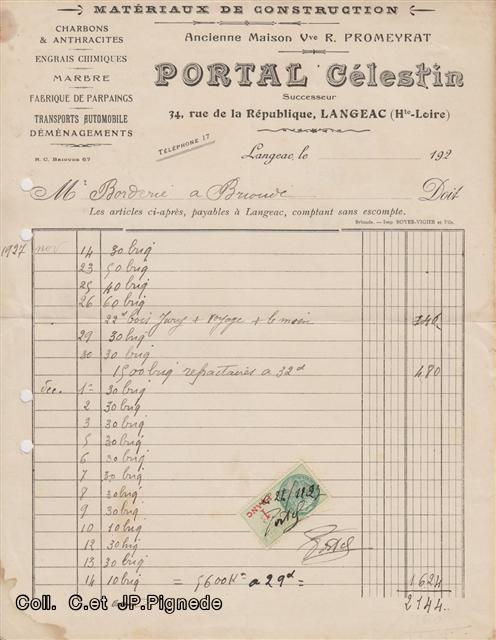 MATÉRIAUX DE CONSTRUCTION
CHARBONS
& ANTHRACITES
ENGRAIS CHIMIQUES
MARBRE
FABRIQUE DE PARPAINGS
TRANSPORTS AUTOMOBILE
DÉMÉNAGEMENTS
R. C. BRIOUDE 67
Ancienne Maison Vve R. PROMEYRAT
PORTAL Célestin
Successeur
34, rue de la République, LANGEAC (Hte-Loire)
TÉLÉPHONE 17
Langeac, le 192
Mr Borderie a Brioude Doit
Les articles ci-après, payables à Langeac, comptant sans escompte.
Brioude. — Imp. BOYER-VIGIER et Fils.
1927 nov 14 30 briq
23 50 briq
25 40 briq
26 60 briq
voyage +
29 30 briq
30 30 briq
1500 briq refractaires a 32d 480
Dec. 1er 30 briq
2 30 briq
3 30 briq
5 30 briq
6 30 briq
7 30 briq
8 30 briq
9 30 briq
10 10 briq
12 30 briq
13 30 briq
14 10 briq = 5600 a 29d = 1624
2144
Portal
Coll. C.et JP.Pignede